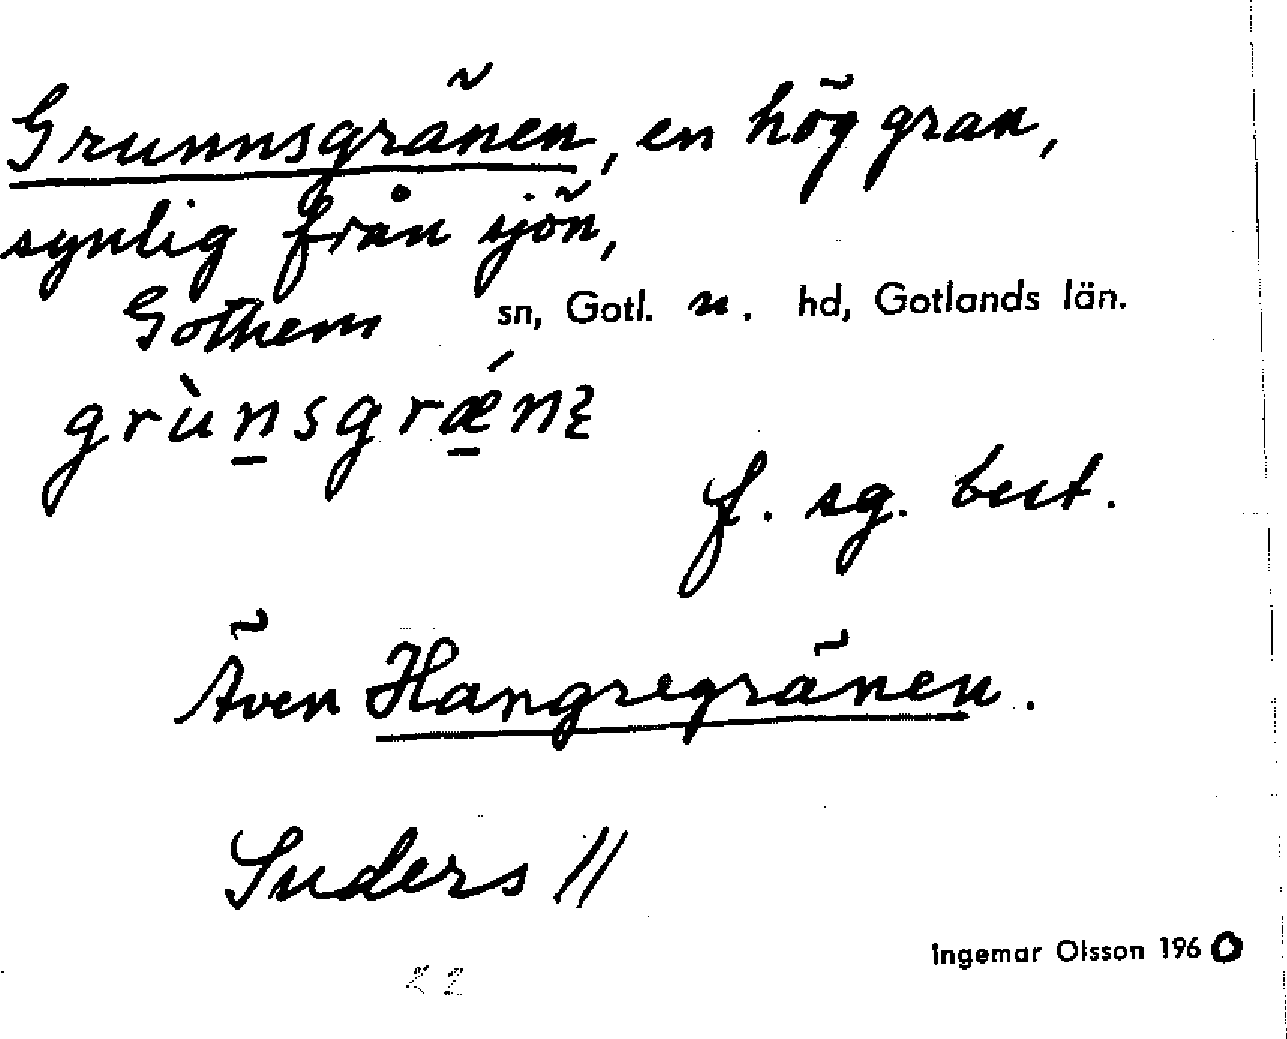 Grunnsgränen, en hög gran,
synlig från sjön,
Gothem sn, Gotl. n. hd, Gotlands län.
grùn̲sgrǽ̲nꝫ
f. sg. best.
Även Hangregränen.
Suders 11
Ingemar Olsson 1960
22